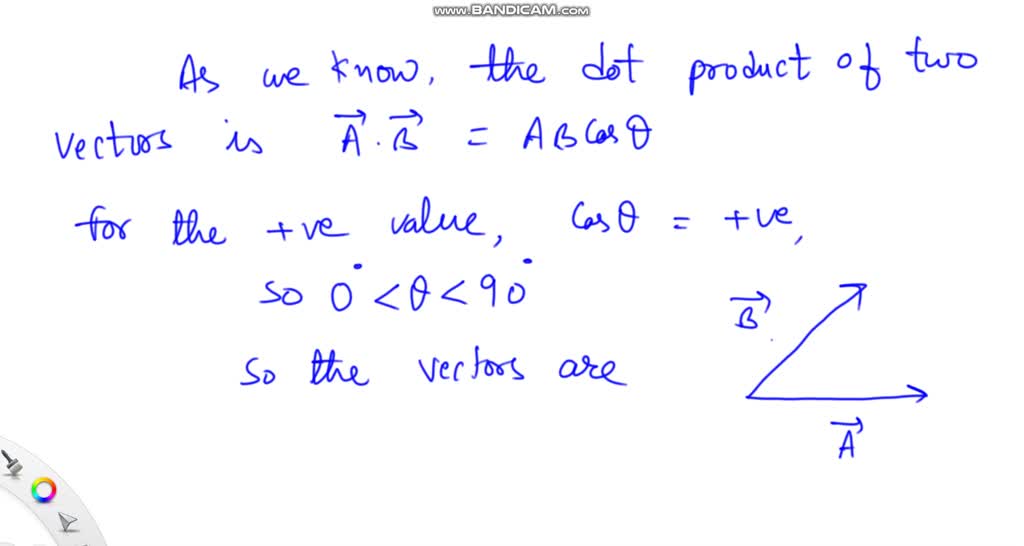 www.BANDICAM.com
As we know, the dot product of two
vectors is A⃗ . B⃗ = A B Cos θ
for the +ve value, Cos θ = +ve,
so 0° < θ < 90°
B⃗
so the vectors are
A⃗